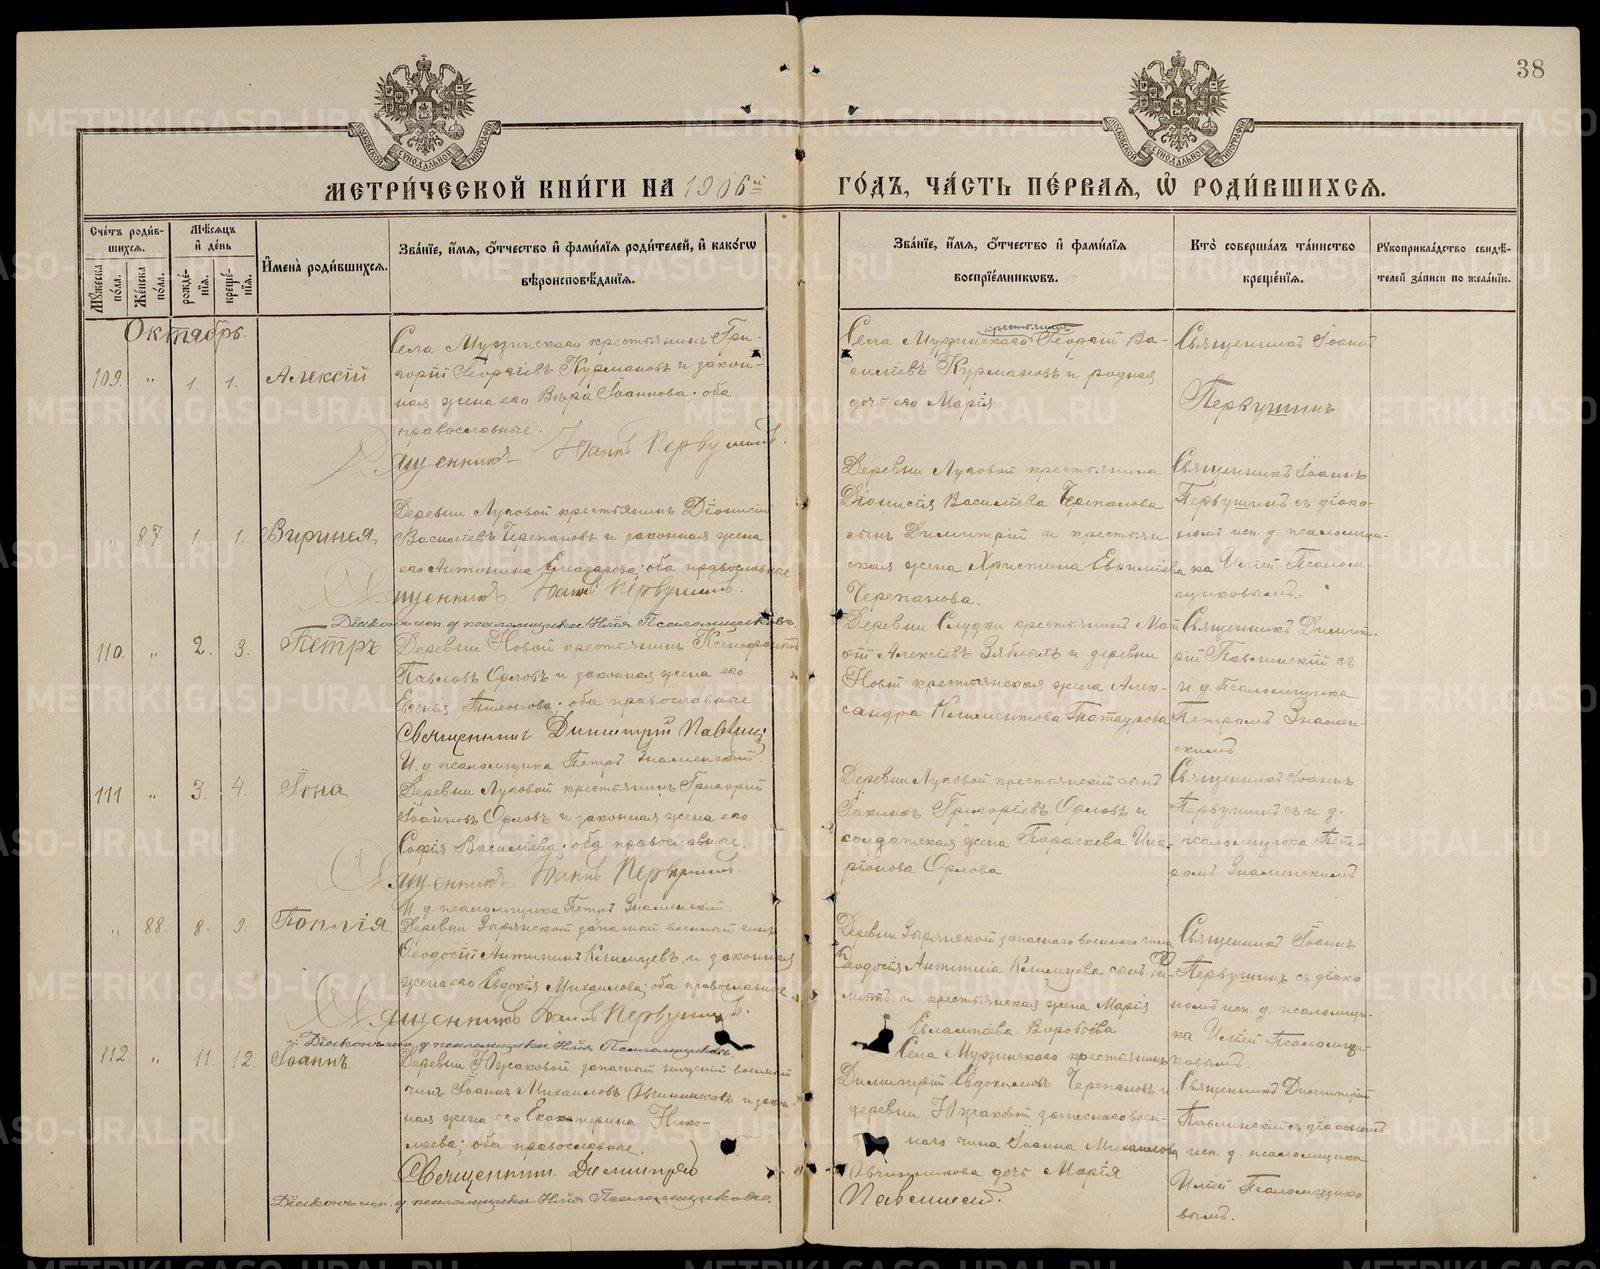 38
МЕТРИ́ЧЕСКОЙ КНИ́ГИ НА 1906й
ГО́ДЪ, ЧА́СТЬ ПЕ́РВАЯ, Ѽ РОДИ́ВШИХСѦ.
Сче́тъ роди́вшихсѧ.
Мꙋ́жеска по́ла.
Же́нска по́ла.
Мѣ́сѧцъ и҆ де́нь
рожде́нїѧ.
креще́нїѧ.
И҆мена̀ роди́вшихсѧ.
Зва́нїе, и҆́мѧ, ѻ҆́тчество и҆ фами́лїѧ роди́телей, и҆ како́гѡ вѣроисповѣ́данїѧ.
Зва́нїе, и҆́мѧ, ѻ҆́тчество и҆ фами́лїѧ воспрїе́мникѡвъ.
Кто̀ соверша́лъ та́инство креще́нїѧ.
Рꙋкоприкла́дство свидѣ́телей за́писи по жела́нїю.
Октябрь.
109. " 1. 1. Алексій
Села Мурзинскаго крестьянинъ Гри-
горій Георгіевъ Курмановъ и закон-
ная жена его Вѣра Іоаннова; оба
православные.
Священникъ Іоаннъ Первушинъ.
Села Мурзинскаго крестьянинъ Георгій Ва-
силіевъ Курмановъ и родная
дочь его Марія
Священникъ Іоаннъ
Первушинъ
" 87. 1. 1. Виринея
Деревни Луговой крестьянинъ Діонисій
Василіевъ Черепановъ и законная жена
его Антонина Елеазарова; оба православные
Священникъ Іоаннъ Первушинъ.
Діаконъ исп. д. псаломщика Илія Псаломщиковъ.
Деревни Луговой крестьянина
Діонисія Василіева Черепанова
сынъ Димитрій и крестьян-
ская жена Христина Евсиміева
Черепанова.
Священникъ Іоаннъ
Первушинъ съ діако-
номъ исп. д. псаломщи-
ка Иліей Псалом-
щиковымъ.
110. " 2. 3. Петръ
Деревни Новой крестьянинъ Ксенофонтъ
Павловъ Орловъ и законная жена его
Тихонова; оба православные
Священникъ Димитрій
И. д. псаломщика Петръ Знаменскій.
Деревни Слудки крестьянинъ
Алексіевъ Зяблыхъ и деревни
Новой крестьянская жена Алек-
сандра Климентова Татаурова
Священникъ Димит-
рій съ
и. д. Псаломщика
Петромъ Знамен-
скимъ
111 " 3. 4. Іона
Деревни Луговой крестьянинъ Григорій
Іоанновъ Орловъ и законная жена его
Софія Василіева; оба православные.
Священникъ Іоаннъ Первушинъ.
И. д. псаломщика Петръ Знаменскій
Деревни Луговой крестьянскій сынъ
Григоріевъ Орловъ и
солдатская жена Параскева Ила-
ріонова Орлова
Священникъ Іоаннъ
Первушинъ съ и. д.
псаломщика Пет-
ромъ Знаменскимъ
" 88. 8. 9. Поплія
Деревни Зырянской запасный военный чинъ
Ѳеодосій Антипинъ и законная
жена его Евдокія Михаилова; оба православные
Священникъ Іоаннъ Первушинъ.
Діаконъ исп. д. псаломщика Илія Псаломщиковъ.
Деревни Зырянской запаснаго военнаго чина
Ѳеодосія Антипина сынъ Фи-
липпъ и крестьянская жена Марія
Евлампіева Воробьева
Священникъ Іоаннъ
Первушинъ съ діако
номъ исп. д. псаломщи-
ка Иліей Псаломщи-
ковымъ.
112. " 11. 12. Іоаннъ.
Деревни запасный нижній военный
чинъ Іоаннъ Михаиловъ Овчинниковъ и закон-
ная жена его Екатерина Нико-
лаева; оба православные.
Священникъ Димитрій
Діаконъ исп. д. псаломщика Илія Псаломщиковъ.
Села Мурзинскаго крестьянинъ
Димитрій Евдокимовъ Черепановъ и
деревни запаснаго воен-
наго чина Іоанна Михаилова
Овчинникова дочь Марія
Священникъ Димитрій
съ діакономъ
исп. д. псаломщика
Иліей Псаломщико
вымъ.